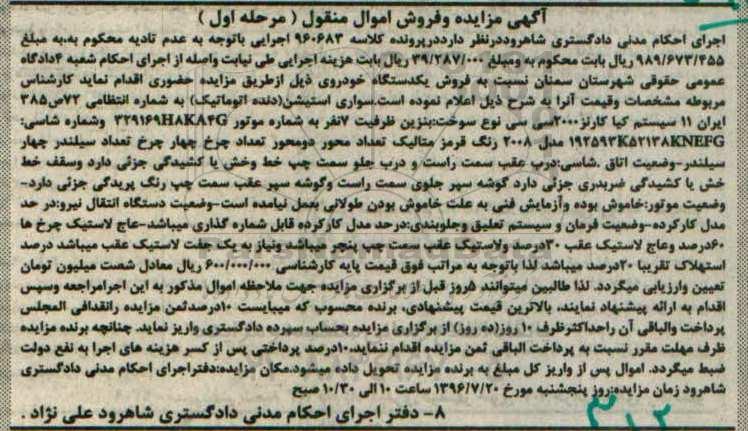 آگهی مزایده وفروش اموال منقول ( مرحله اول )
اجرای احکام مدنی دادگستری شاهروددرنظر دارددرپرونده کلاسه ۹۶۰۶۸۳ اجرایی باتوجه به عدم تادیه محکوم به،به مبلغ
۹۸۹/۶۷۳/۴۵۵ ریال بابت محکوم به ومبلغ ۳۹/۲۸۷/۰۰۰ ریال بابت هزینه اجرایی طی نیابت واصله از اجرای احکام شعبه ۴دادگاه
عمومی حقوقی شهرستان سمنان نسبت به فروش یکدستگاه خودروی ذیل ازطریق مزایده حضوری اقدام نماید کارشناس
مربوطه مشخصات وقیمت آنرا به شرح ذیل اعلام نموده است.سواری استیشن(دنده اتوماتیک) به شماره انتظامی ۷۲ص۳۸۵
ایران ۱۱ سیستم کیا کارنز۲۰۰۰سی سی نوع سوخت:بنزین ظرفیت ۷نفر به شماره موتور ۳۲۹۱۶۹HAKA۴G وشماره شاسی:
۱۹۲۵۹۳K۵۲۱۳۸KNEFG مدل ۲۰۰۸ رنگ قرمز متالیک تعداد محور دومحور تعداد چرخ چهار چرخ تعداد سیلندر چهار
سیلندر-وضعیت اتاق .شاسی:درب عقب سمت راست و درب جلو سمت چپ خط وخش یا کشیدگی جزئی دارد وسقف خط
خش یا کشیدگی ضربدری جزئی دارد گوشه سپر جلوی سمت راست وگوشه سپر عقب سمت چپ رنگ پریدگی جزئی دارد-
وضعیت موتور:خاموش بوده وآزمایش فنی به علت خاموش بودن طولانی بعمل نیامده است-وضعیت دستگاه انتقال نیرو:در حد
مدل کارکرده-وضعیت فرمان و سیستم تعلیق وجلوبندی:درحد مدل کارکرده قابل شماره گذاری میباشد-عاج لاستیک چرخ ها
۶۰درصد وعاج لاستیک عقب ۳۰درصد ولاستیک عقب سمت چپ پنچر میباشد ونیاز به یک جفت لاستیک عقب میباشد درصد
استهلاک تقریبا ۲۰درصد میباشد لذا باتوجه به مراتب فوق قیمت پایه کارشناسی ۶۰۰/۰۰۰/۰۰۰ ریال معادل شصت میلیون تومان
تعیین وارزیابی میگردد. لذا طالبین میتوانند ۵روز قبل از برگزاری مزایده جهت ملاحظه اموال مذکور به این اجرامراجعه وسپس
اقدام به ارائه پیشنهاد نمایند، بالاترین قیمت پیشنهادی، برنده محسوب که میبایست ۱۰درصدثمن مزایده رانقدافی المجلس
پرداخت والباقی آن راحداکثرظرف ۱۰ روز(ده روز) از برگزاری مزایده بحساب سپرده دادگستری واریز نماید. چنانچه برنده مزایده
ظرف مهلت مقرر نسبت به پرداخت الباقی ثمن مزایده اقدام ننماید،۱۰درصد پرداختی پس از کسر هزینه های اجرا به نفع دولت
ضبط میگردد. اموال پس از واریز کل مبلغ به برنده مزایده تحویل داده میشود.مکان مزایده:دفتراجرای احکام مدنی دادگستری
شاهرود زمان مزایده:روز پنجشنبه مورخ ۱۳۹۶/۷/۲۰ ساعت ۱۰ الی ۱۰/۳۰ صبح
۸- دفتر اجرای احکام مدنی دادگستری شاهرود علی نژاد .
۳۱۳